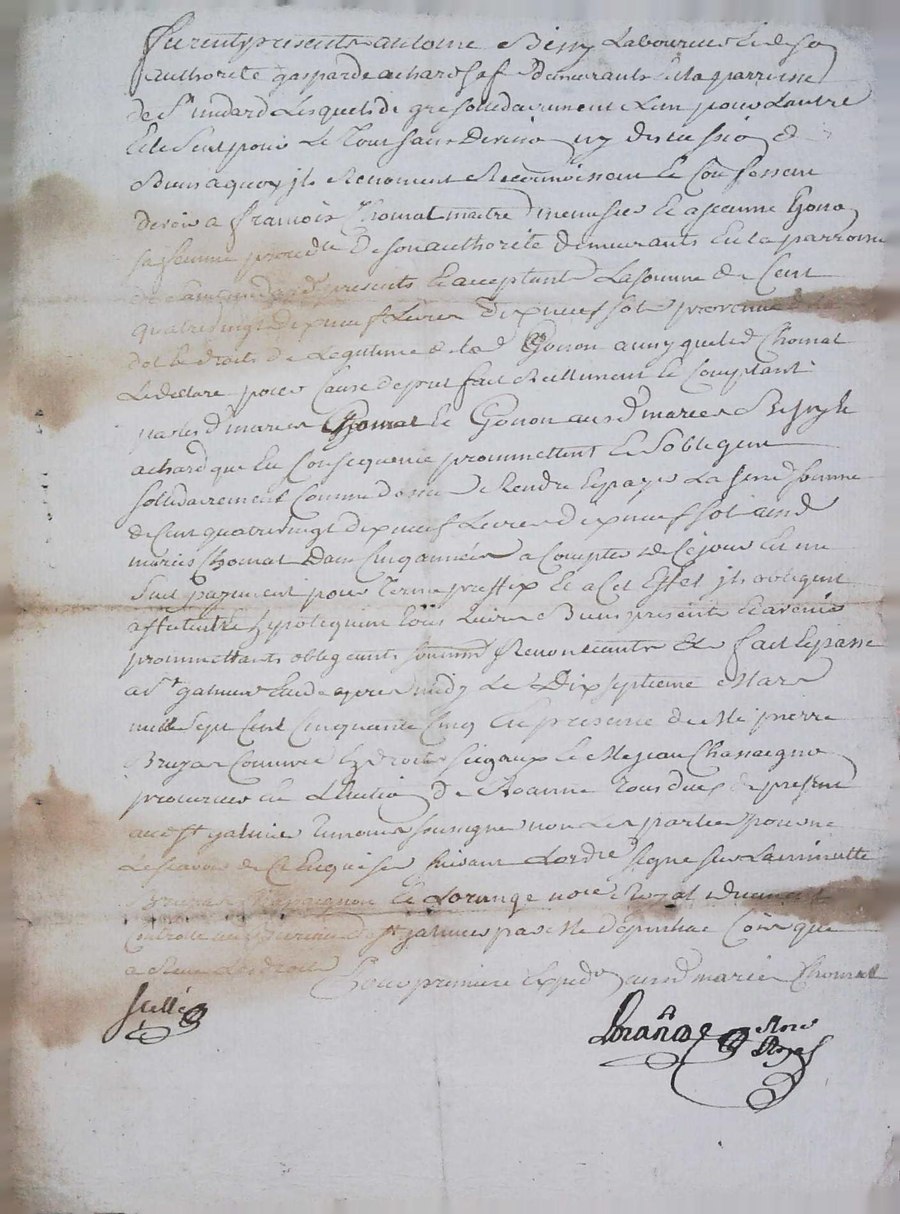 furent presents antoine Bissy Laboureur et de so
authorité gasparde achard sa f demeurants en la parroisse
de St medard Lesquels de gre solidairement Lun pour Lautre
et le seul pour Le Tout sans Division ny discussion
Biens a quoy ils Renoncent Reconnoissent et Confessent
devoir a francois Chomat maitre menusier et a jeanne Gonon
sa femme proced de son authorité demeurants en la parroisse
presents et acceptant La somme de Cent
quatrevingt dix neuf Livres dix neuf sols provenue
dot et droits de Legitime de lad Gonon ainsy que led Chomat
Le declare pour Cause de pret fait reellement et Comptant
par les d mariés Chomat et Gonon ausd mariés Bissy et
achard que en Consequence promettent et soblegent
solidairement Comme dessus de Rendre et payer La susd somme
de Cent quatrevingt dix neuf Livres dix neuf sols ausd
mariés Chomat dans Cinq années a Compter de Ce jour en un
seul payement pour Terme preffix et a Cet Effet ils obligent
affectent et hypotequent tous Leurs Biens presents et avenir
promettants obligeants soumett Renonceants fait et passé
a St galmier Etude apres midy Le Dix septieme Mars
mille sept Cent Cinquante Cinq en presence de Me pierre
Bruyas Commis Es droits et Me jean Chassaignon
procureur en L'Election de Roanne Tous deux de present
aud St galmier Temoins soussignes non Les parties pour ne
Le scavoir de Ce Enquises suivant Lordre signe sur La minutte
Bruyas Chassaignon et Lorange noire Royal
Controlé au Bureau de St galmier par Me depinhac Comis que
a Receu Les droits
Pour premiere Expedon ausd mariés Chomat
Scellé
Lorange Nore
Royal